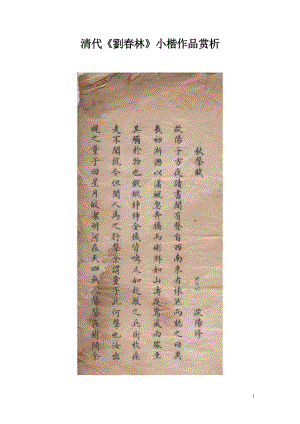 清代《劉春林》小楷作品赏析
秋聲賦
歐陽修
歐陽子方夜讀書聞有聲自西南來者悚然而聽之曰異
哉初淅瀝以瀟颯忽奔騰而澎湃如山濤夜驚風雨驟至
其觸於物也鏦鏦錚錚金鐵皆鳴又如赴敵之兵銜枚疾
走不聞號令但聞人馬之行聲余謂童子此何聲也汝出
視之童子曰星月皎潔明河在天四無人聲聲在樹間余
1